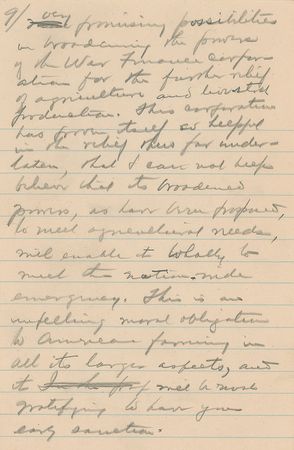 9/ very promising possibilities
in broadening the powers
of the War Finance Corpora-
tion for the further relief
of agriculture and livestock
production. This corporation
has proven itself so helpful
in the relief thus far under-
taken, that I can not help
believe that its broadened
powers, as have been proposed,
to meet agricultural needs,
will enable it wholly to
meet the nation-wide
emergency. This is an
impelling moral obligation
to American farming in
all its larger aspects, and
it will be most
gratifying to have your
early sanction.